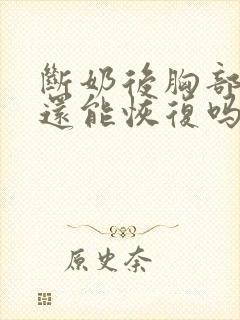 斷奶後胸部
還能恢復嗎
原史奈